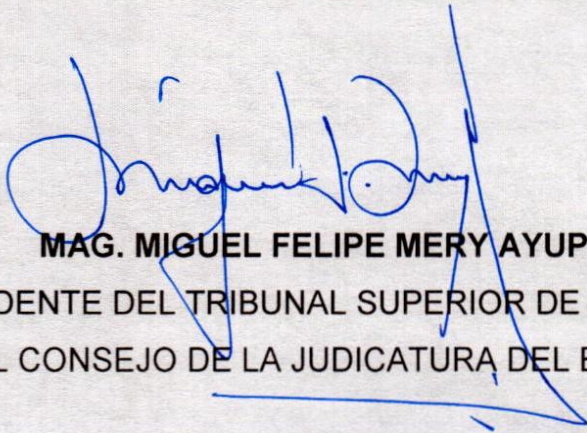 MAG. MIGUEL FELIPE MERY AYUP
DENTE DEL TRIBUNAL SUPERIOR DE
L CONSEJO DE LA JUDICATURA DEL E